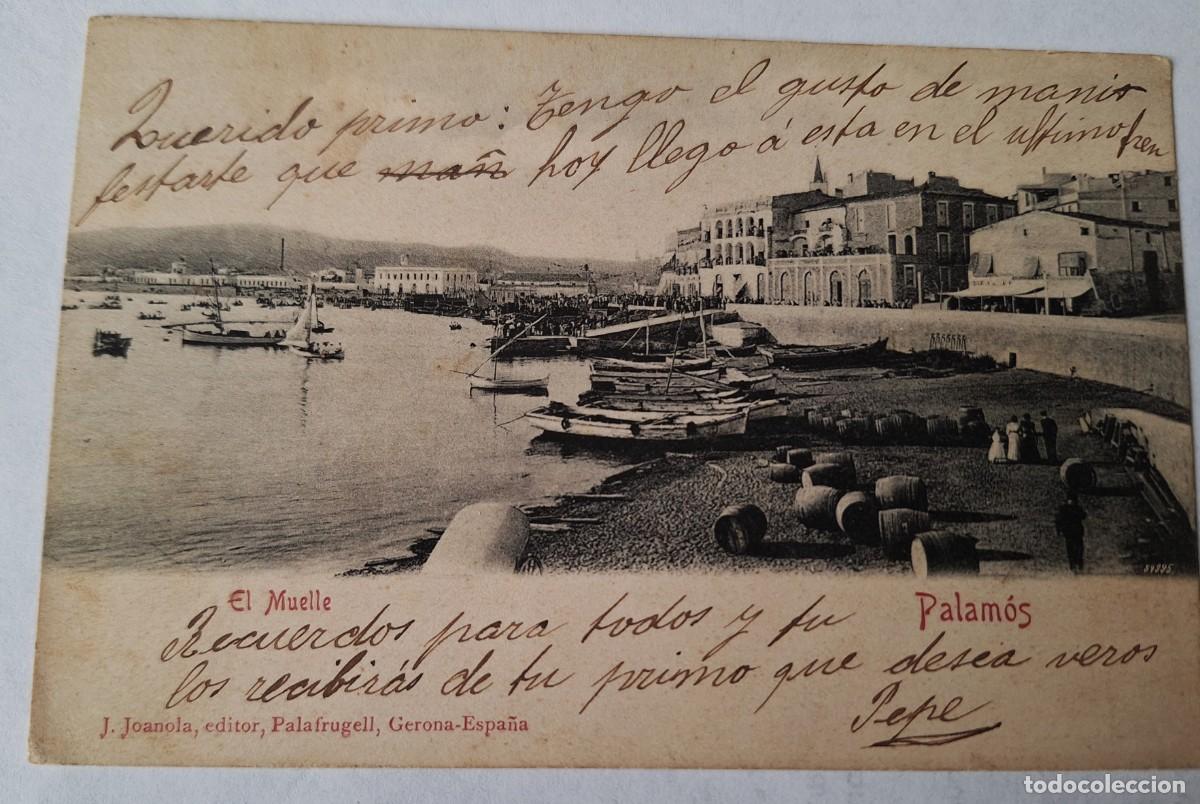 Querido primo: Tengo el gusto de manis
festarte que mañ hoy llego á esta en el ultimo tren
84895
El Muelle
Palamós
Recuerdos para todos y tu
los recibirás de tu primo que desea veros
Pepe
J. Joanola, editor, Palafrugell, Gerona-España
todocoleccion